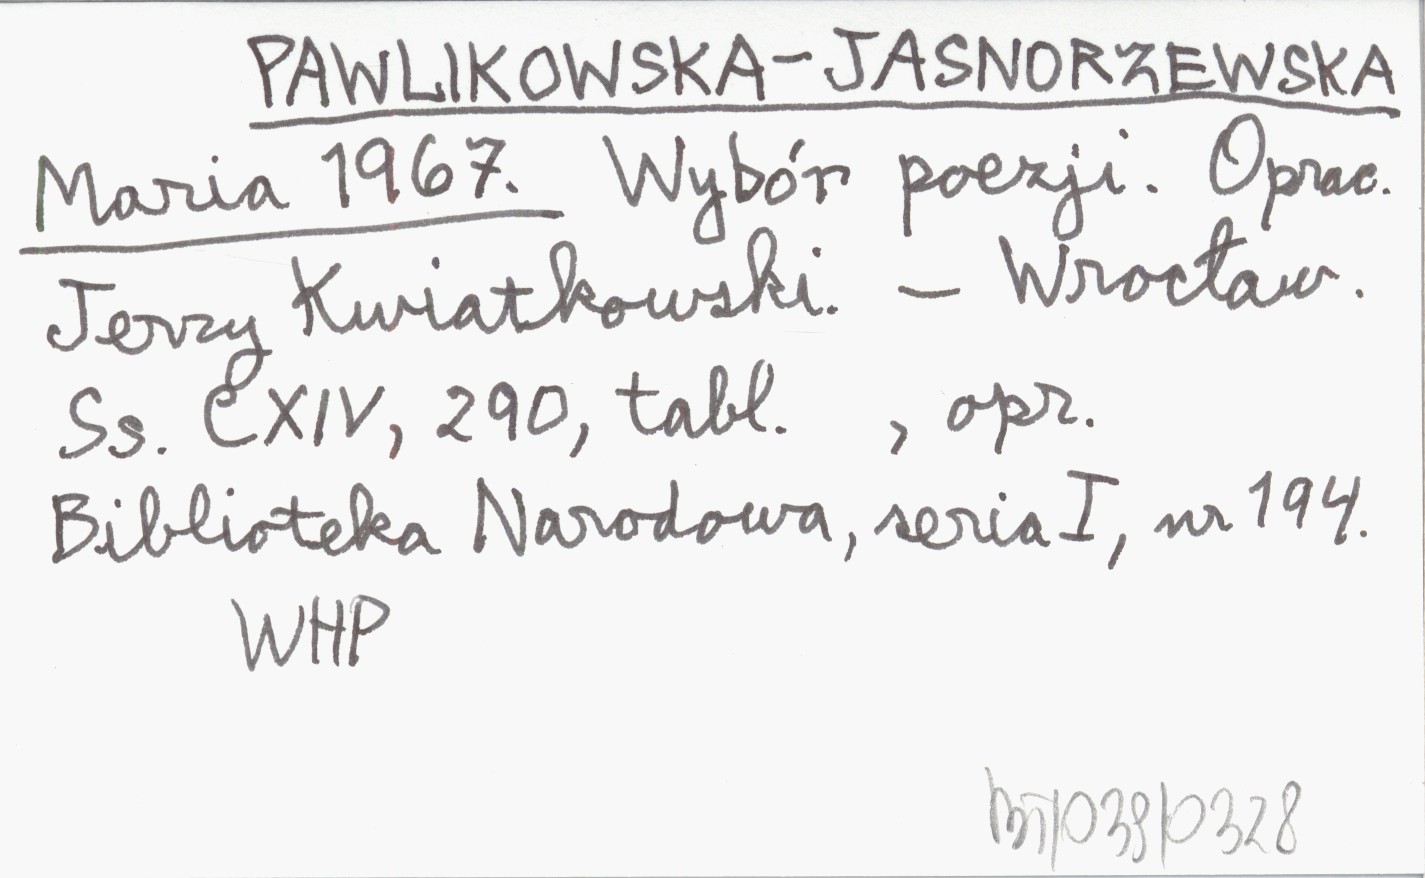 PAWLIKOWSKA-JASNORZEWSKA
Maria 1967. Wybór poezji. Oprac.
Jerzy Kwiatkowski. - Wrocław.
Ss. CXIV, 290, tabl. , opr.
Biblioteka Narodowa, seria I, nr 194.
WHP